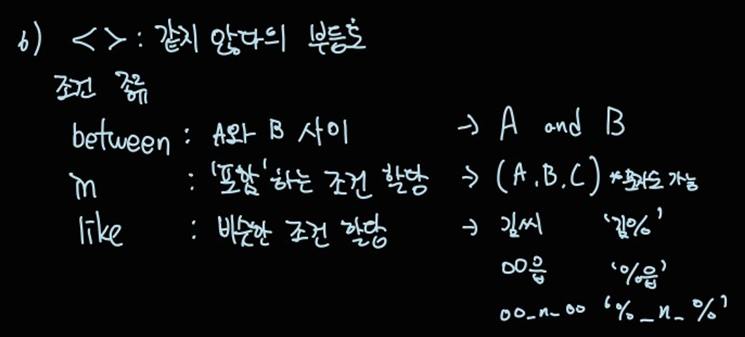 b) <> : 같지 않다의 부등호
조건 종류
between : A와 B 사이 → A and B
in : '포함'하는 조건 할당 → (A, B, C) *문자도 가능
like : 비슷한 조건 할당 → 김씨 '김%'
00읍 '%읍'
00_n_00 '%_n_%'